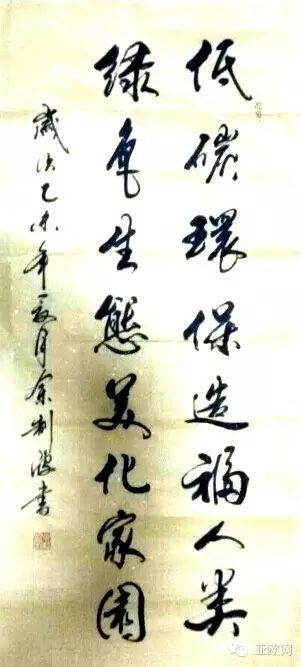 低碳環保造福人类
绿色生態美化家園
歲次乙未年夏月余制波書
亚欧网